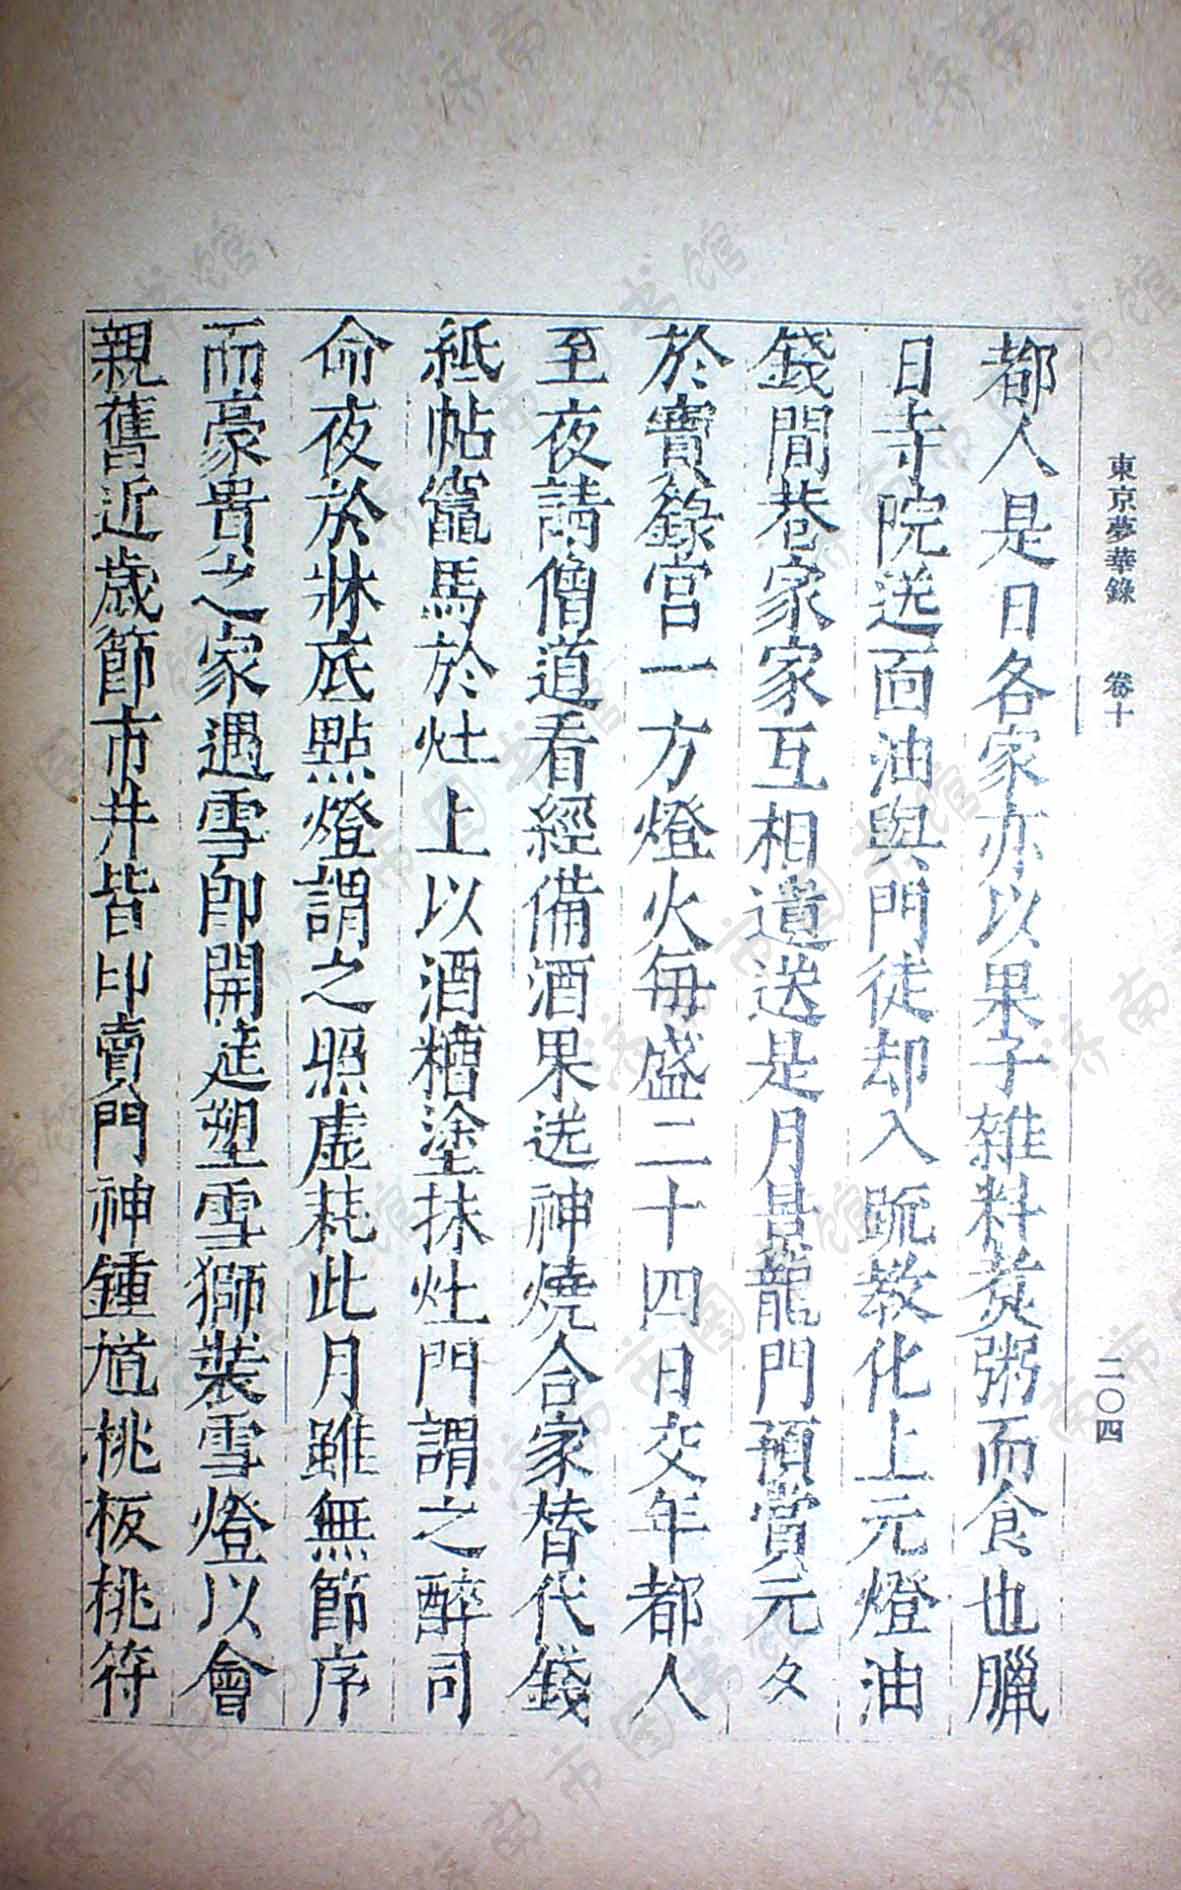 東京夢華錄 卷十 二〇四
都人是日各家亦以果子雜料煑粥而食也臘
日寺院送面油與門徒却入疏教化上元燈油
錢閭巷家家互相遺送是月景龍門預賞元夕
於寶籙宮一方燈火每盛二十四日交年都人
至夜請僧道看經備酒果送神燒合家替代錢
紙帖竈馬於灶上以酒糟塗抹灶門謂之醉司
命夜於牀底點燈謂之照虛耗此月雖無節序
而豪貴之家遇雪卽開筵塑雪獅裝雪燈以會
親舊近歲節市井皆印賣門神鍾馗桃板桃符
济南市图书馆